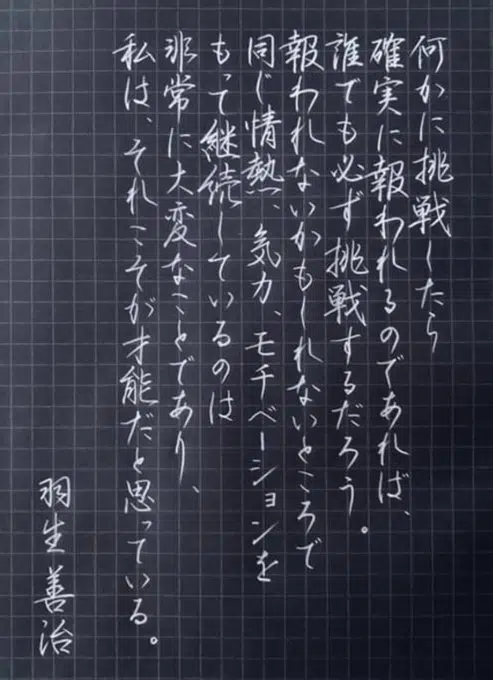 何かに挑戦したら
確実に報われるのであれば、
誰でも必ず挑戦するだろう。
報われないかもしれないところで
同じ情熱、気力、モチベーションを
もって継続しているのは
非常に大変なことであり、
私は、それこそが才能だと思っている。
羽生善治